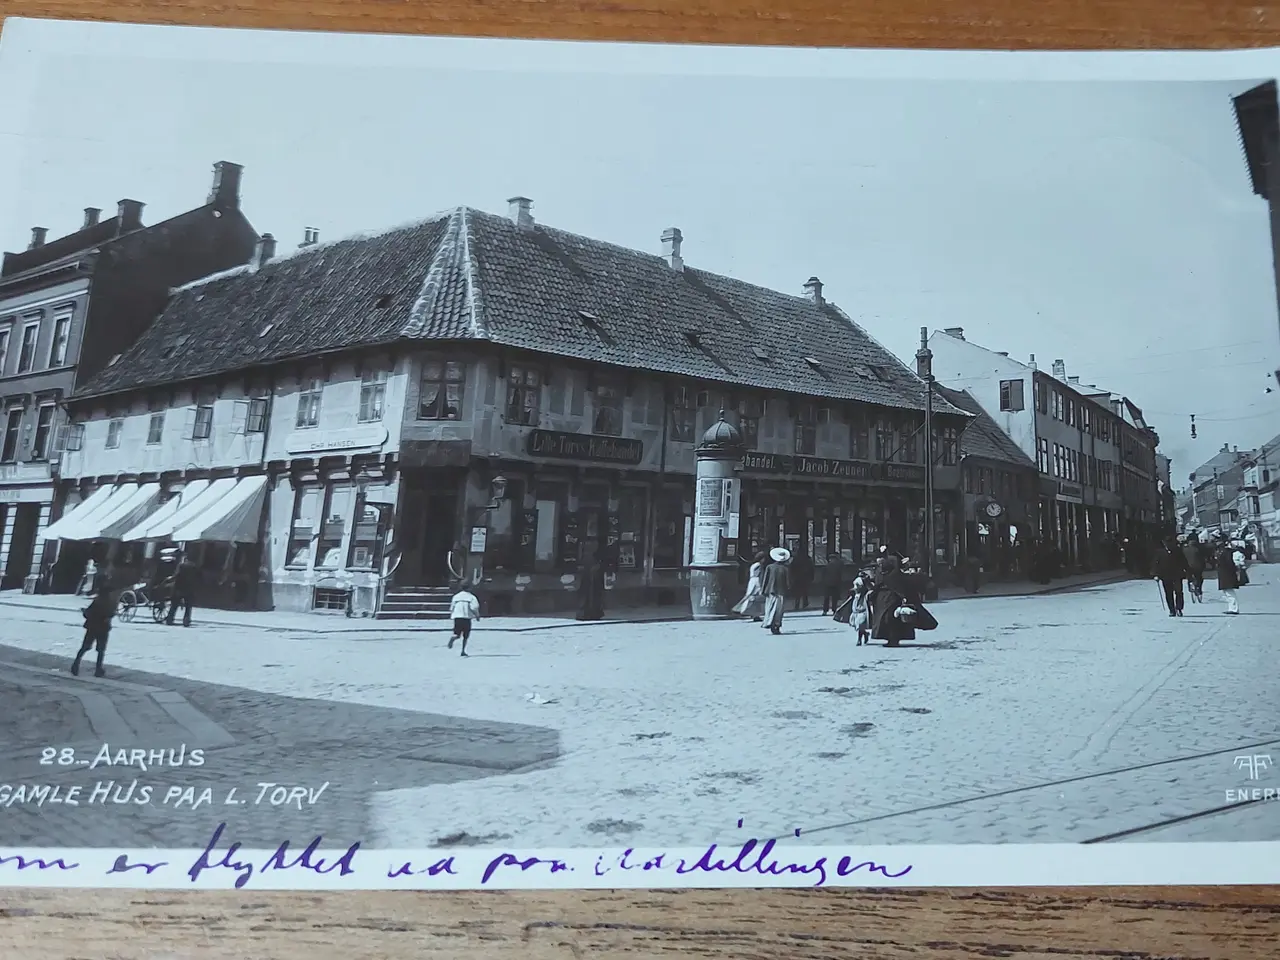 CHR HANSEN
Lille Torvs Kaffehandel
handel. Jacob Zeuner
28.- AARHUS
GAMLE HUS PAA L. TORV
er flyttet ud paa Udstillingen
ENER